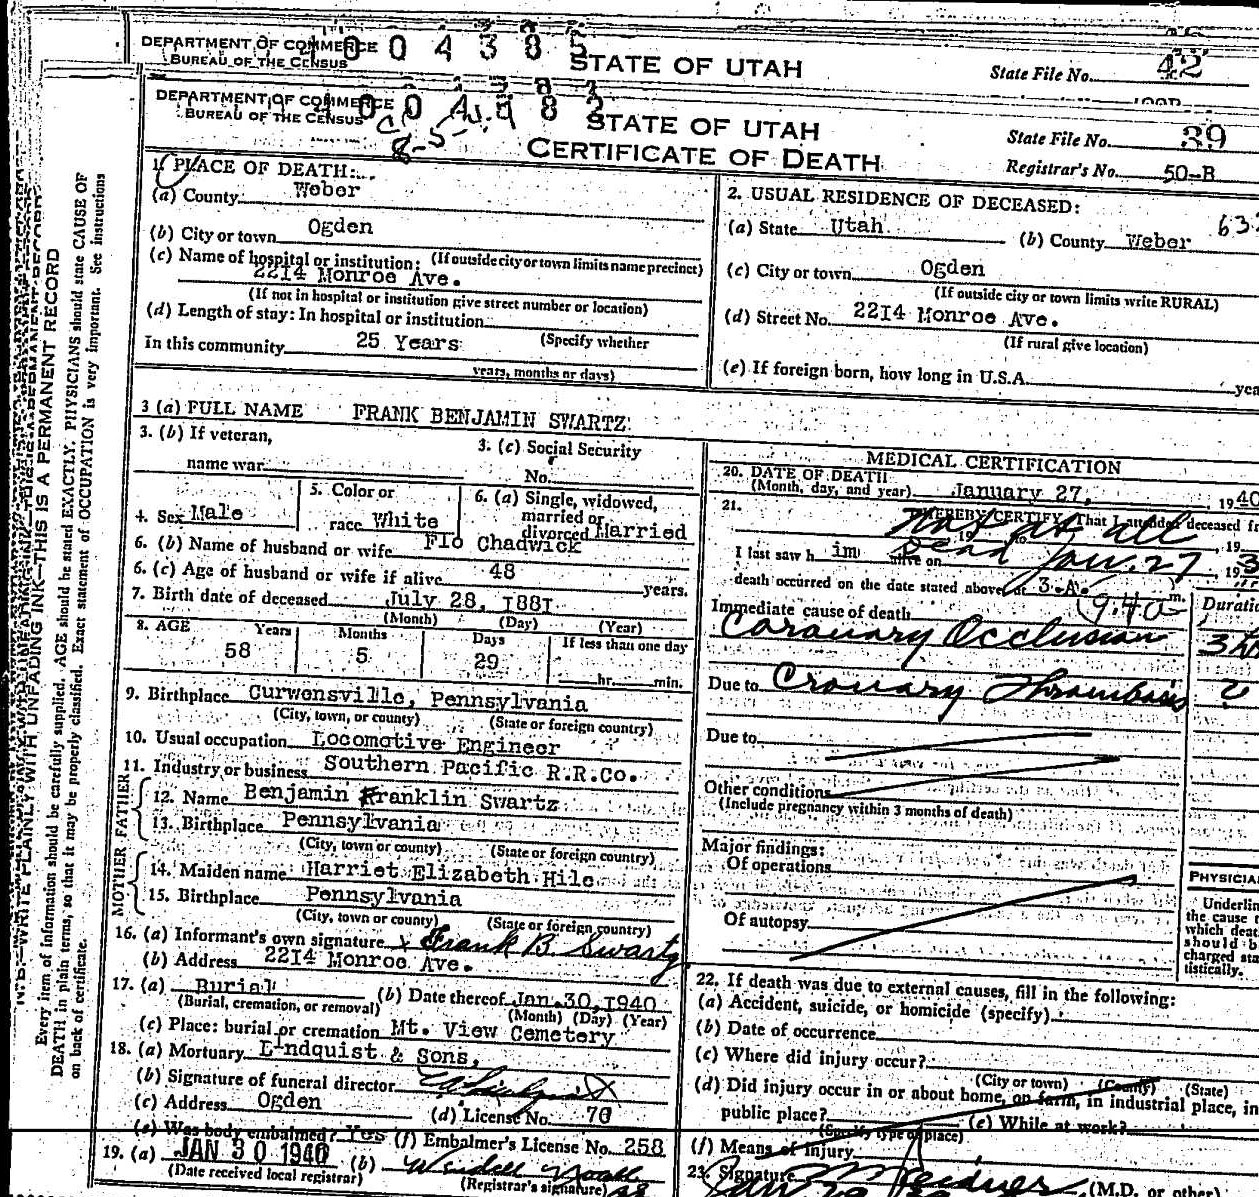 DEPARTMENT OF COMMERCE
BUREAU OF THE CENSUS
1004385
STATE OF UTAH
State File No. 42
DEPARTMENT OF COMMERCE
BUREAU OF THE CENSUS
STATE OF UTAH
CERTIFICATE OF DEATH
State File No. 39
Registrar's No. 50-B
1. PLACE OF DEATH:
(a) County Weber
(b) City or town Ogden
(c) Name of hospital or institution: (If outside city or town limits name precinct)
2214 Monroe Ave.
(If not in hospital or institution give street number or location)
(d) Length of stay: In hospital or institution
(Specify whether
In this community 25 Years
years, months or days)
2. USUAL RESIDENCE OF DECEASED:
(a) State Utah (b) County Weber
(c) City or town Ogden
(If outside city or town limits write RURAL)
(d) Street No. 2214 Monroe Ave.
(If rural give location)
(e) If foreign born, how long in U.S.A. yea
3 (a) FULL NAME FRANK BENJAMIN SWARTZ
3. (b) If veteran,
name war
3. (c) Social Security
No.
4. Sex Male
5. Color or
race White
6. (a) Single, widowed,
married or
divorced Married
6. (b) Name of husband or wife Flo Chadwick
6. (c) Age of husband or wife if alive 48 years.
7. Birth date of deceased July 28, 1881
(Month) (Day) (Year)
8. AGE Years Months Days If less than one day
58 5 29 hr. min.
9. Birthplace Curwensville, Pennsylvania
(City, town, or county) (State or foreign country)
10. Usual occupation Locomotive Engineer
11. Industry or business Southern Pacific R.R.Co.
FATHER
12. Name Benjamin Franklin Swartz
13. Birthplace Pennsylvania
(City, town or county) (State or foreign country)
MOTHER
14. Maiden name Harriet Elizabeth Hile
15. Birthplace Pennsylvania
(City, town or county) (State or foreign country)
16. (a) Informant's own signature x Frank B. Swartz
(b) Address 2214 Monroe Ave.
17. (a) Burial (b) Date thereof Jan.30,1940
(Burial, cremation, or removal) (Month) (Day) (Year)
(c) Place: burial or cremation Mt. View Cemetery
18. (a) Mortuary Lindquist & Sons,
(b) Signature of funeral director
(c) Address Ogden (d) License No. 70
(e) Was body embalmed? Yes (f) Embalmer's License No. 258
19. (a) JAN 30 1940 (b)
(Date received local registrar) (Registrar's signature)
MEDICAL CERTIFICATION
20. DATE OF DEATH
(Month, day, and year) January 27, 1940
21. I HEREBY CERTIFY, That I attended deceased fr
not at all
, 19 to , 19
I last saw h im alive on Dead Jan. 27, 19
death occurred on the date stated above, at 3 A. m.
9:40
Immediate cause of death Duratio
Coronary Occlusion 3 hrs
Due to Cronary Thrombosis ?
Due to
Other conditions
(Include pregnancy within 3 months of death)
Major findings:
Of operations
Of autopsy
PHYSICIA
Underlin
the cause
which deat
should b
charged sta
tistically.
22. If death was due to external causes, fill in the following:
(a) Accident, suicide, or homicide (specify)
(b) Date of occurrence
(c) Where did injury occur?
(City or town) (County) (State)
(d) Did injury occur in or about home, on farm, in industrial place, in
public place?
(Specify type of place)
(e) While at work?
(f) Means of injury
23. Signature (M.D. or other)
N.B.—WRITE PLAINLY WITH UNFADING INK—THIS IS A PERMANENT RECORD
Every item of information should be carefully supplied. AGE should be stated EXACTLY. PHYSICIANS should state CAUSE OF
DEATH in plain terms, so that it may be properly classified. Exact statement of OCCUPATION is very important. See instructions
on back of certificate.